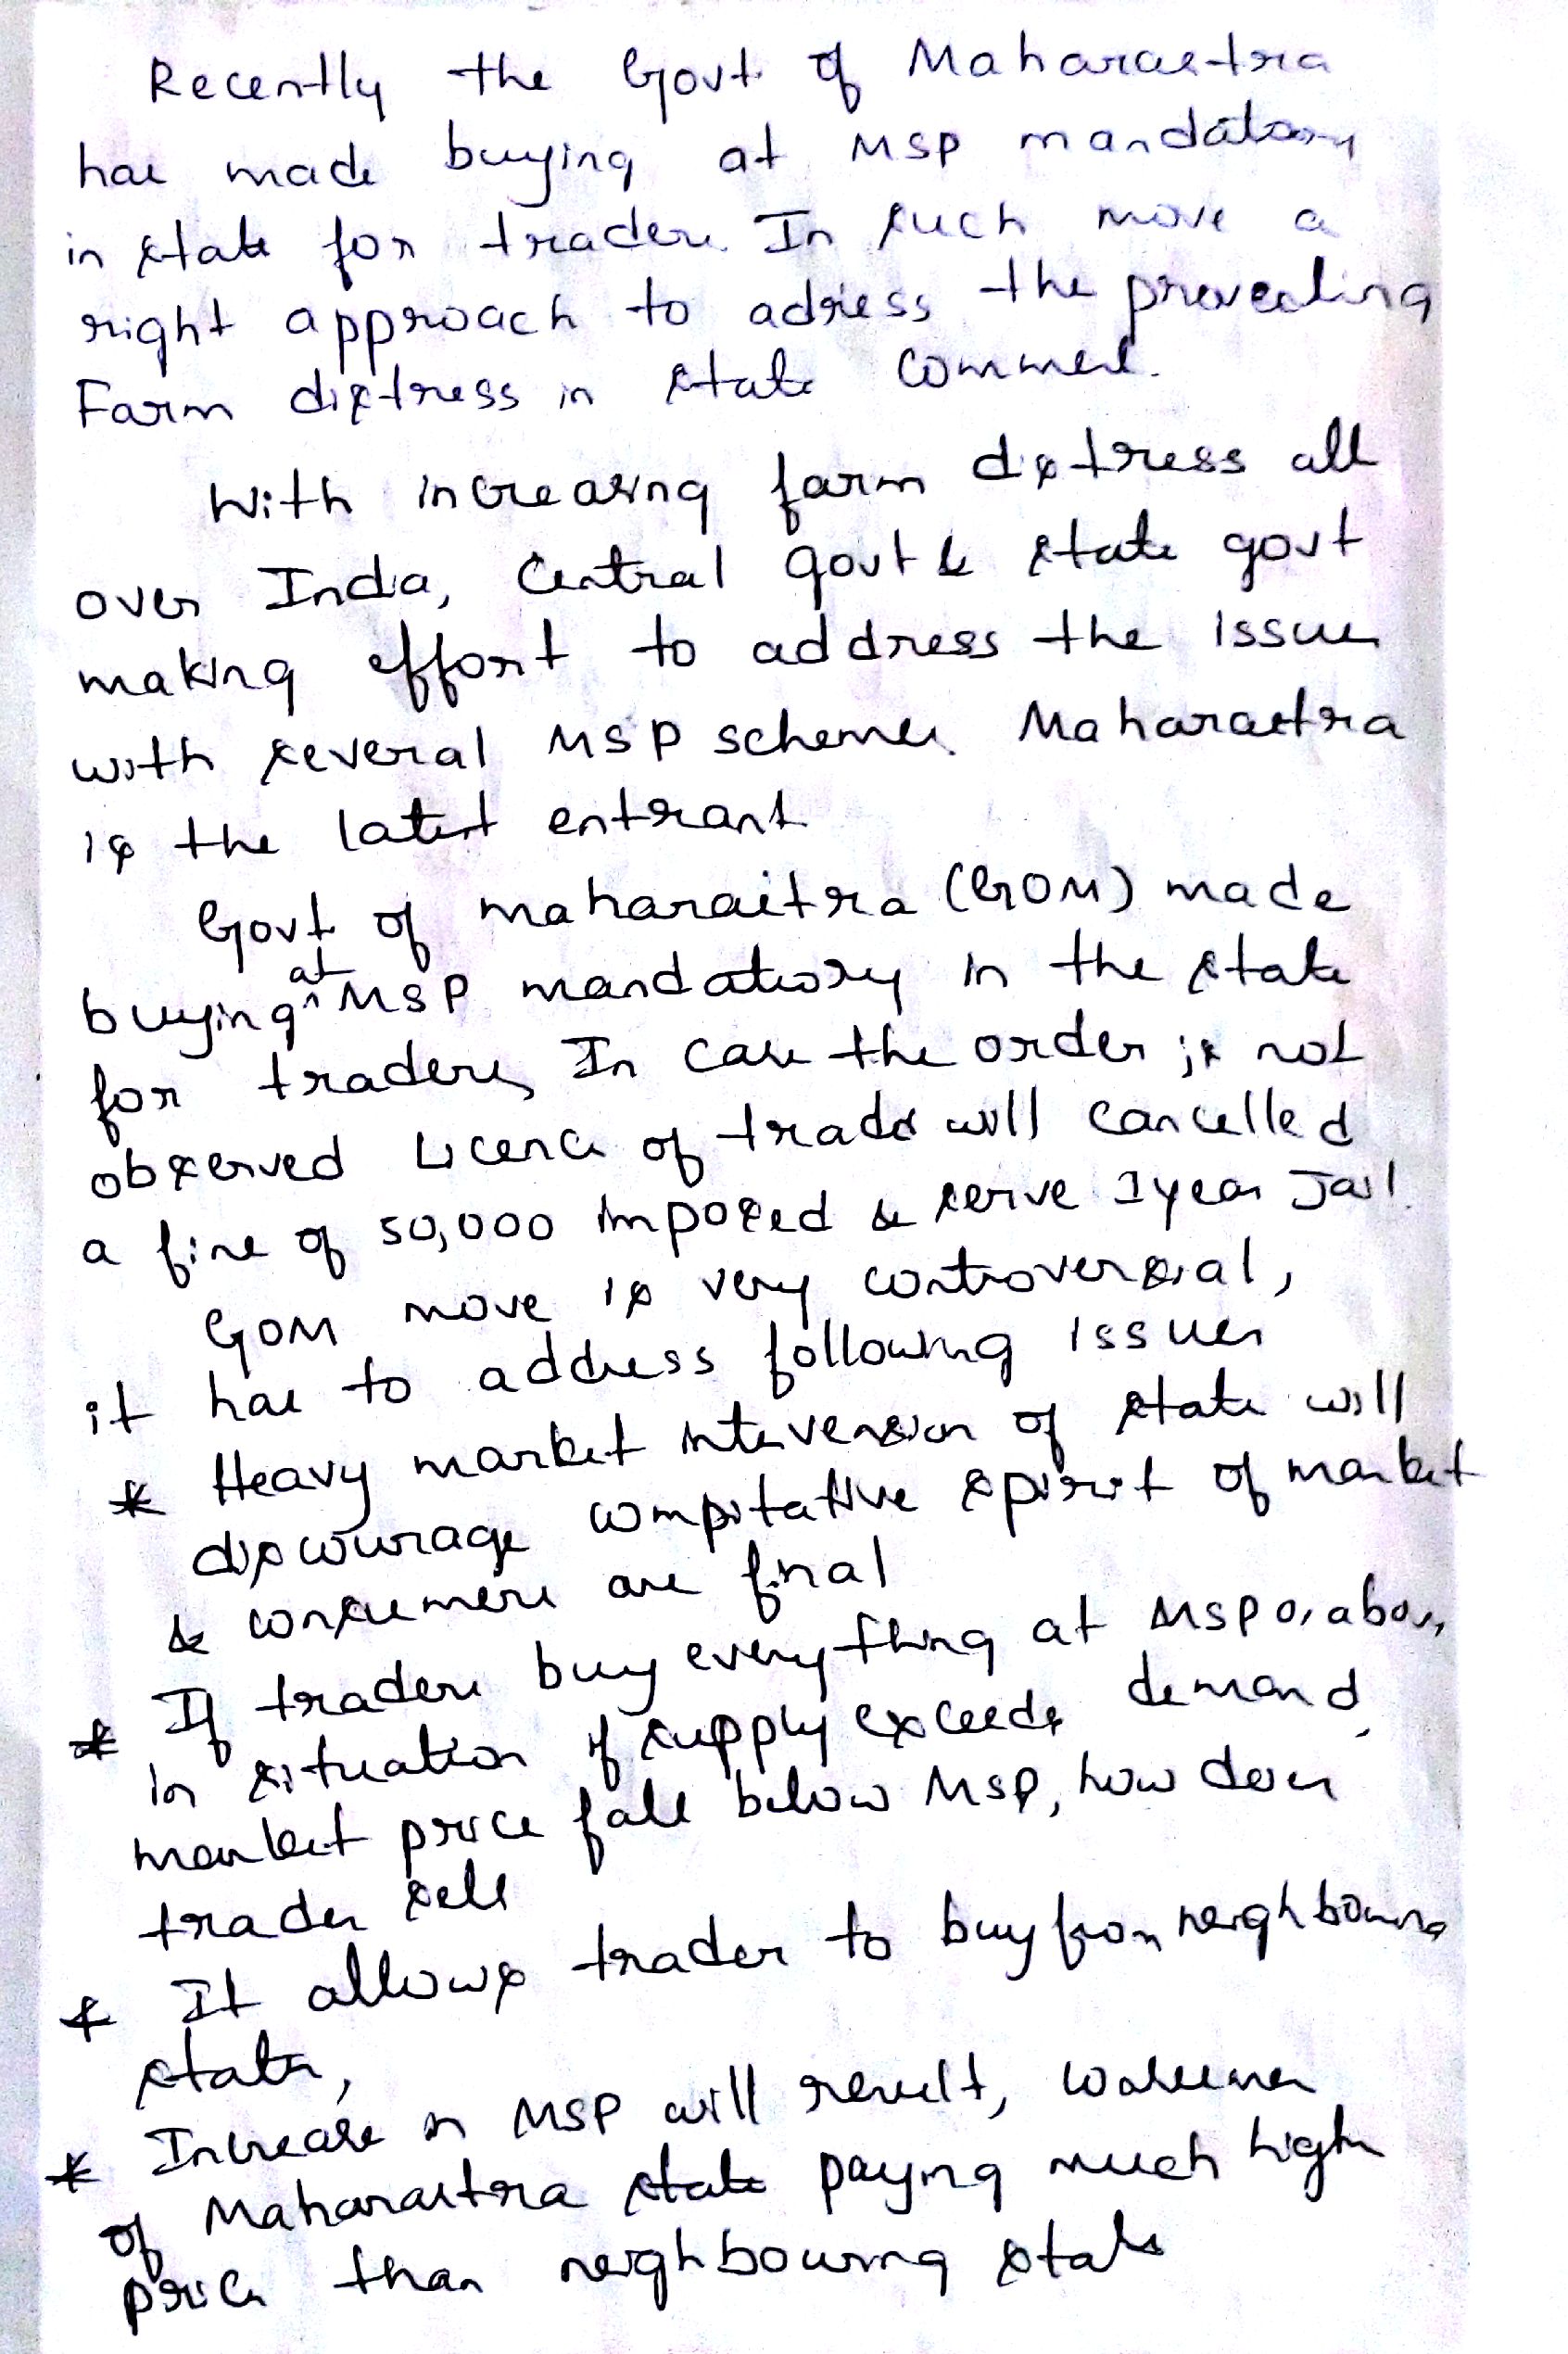 Recently the Govt of Maharastra
has made buying at MSP mandatory
in state for traders. In such move a
right approach to adress the preveeling
Farm distress in state comment.
With increasing farm distress all
over India, Central govt & state govt
making effort to address the issues
with several MSP schemes. Maharastra
is the latest entrant
Govt of maharastra (GOM) made
buying at MSP mandatory in the state
for traders, In case the order is not
observed Licence of trader will cancelled
a fine of 50,000 imposed & serve 1 year Jail.
GOM move is very controversial,
it has to address following issues
* Heavy market intervension of state will
discourage compitative spirit of market
& consumers are final
* If traders buy everything at MSP or above,
in situation if supply exceeds demand,
market price fall below MSP, how does
trader sell
* It allows trader to buy from neighbouring
states,
* Increase in MSP will result,
of Maharastra state paying much high
price than neighbouring state